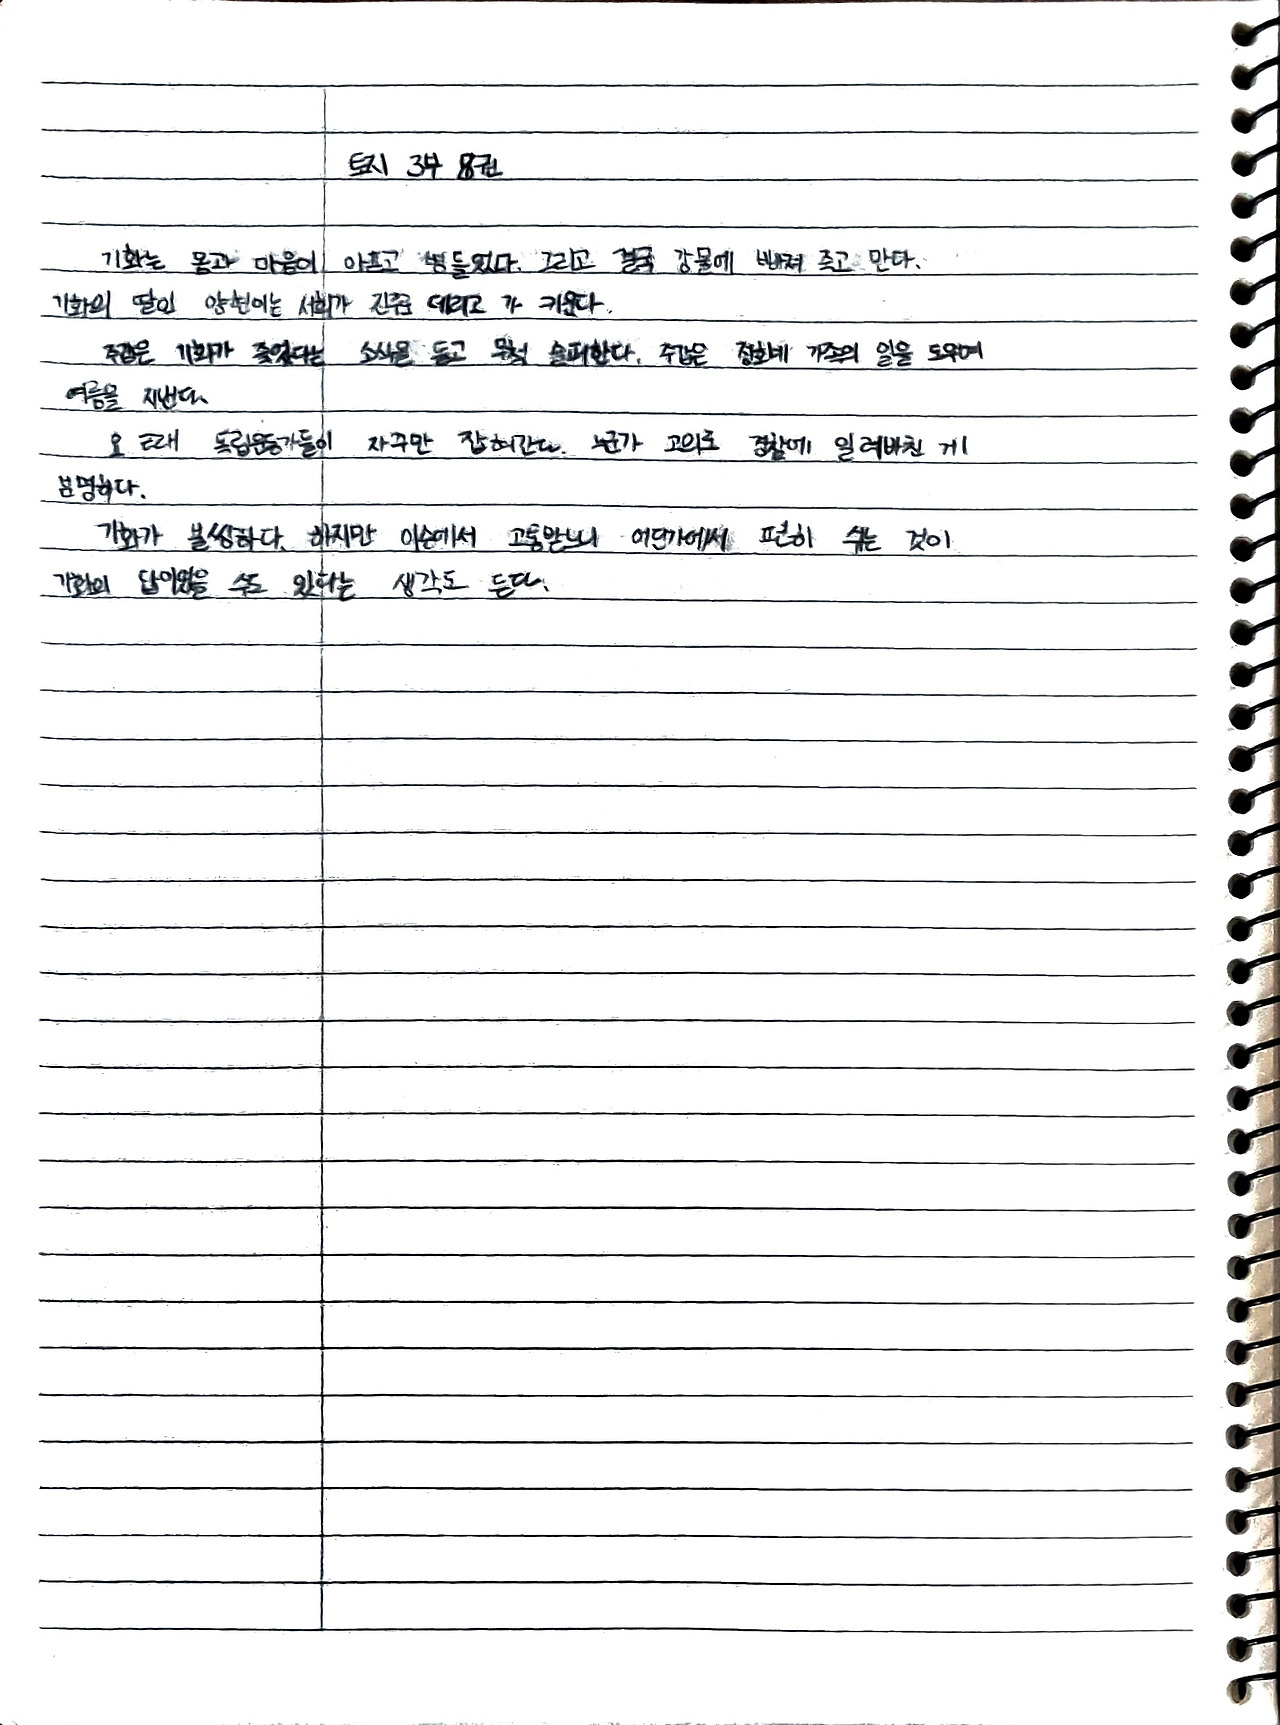 토지 3부 8권
기화는 몸과 마음이 아프고 병들었다. 그리고 결국 강물에 빠져 죽고 만다.
기화의 딸인 양현이는 서희가 진주로 데리고 가 키운다.
주갑은 기화가 죽었다는 소식을 듣고 무척 슬퍼한다. 주갑은 정호네 가족의 일을 도우며
여름을 지낸다.
요 근래 독립운동가들이 자꾸만 잡혀간다. 누군가 고의로 경찰에 일려바친 게
분명하다.
기화가 불쌍하다. 하지만 이승에서 고통받느니 어딘가에서 편히 쉬는 것이
기화의 답이었을 수도 있다는 생각도 든다.